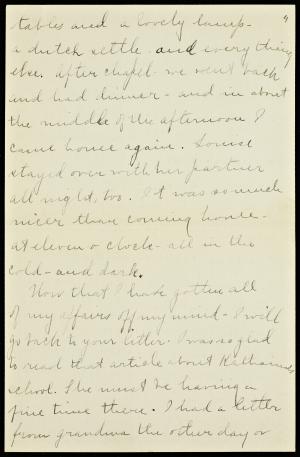 4
tables and a lovely lamp -
a dutch settle and everything
else. After chapel we went back
and had dinner - and in about
the middle of the afternoon I
came home again. Louise
stayed over with her partner
all night, too. It was so much
nicer than coming home -
at eleven o clock - all in the
cold - and dark.
Now that I have gotten all
of my affairs off my mind - I will
go back to your letter. I was so glad
to read that article about Katharine's
school. She must be having a
fine time there. I had a letter
from grandma the other day or